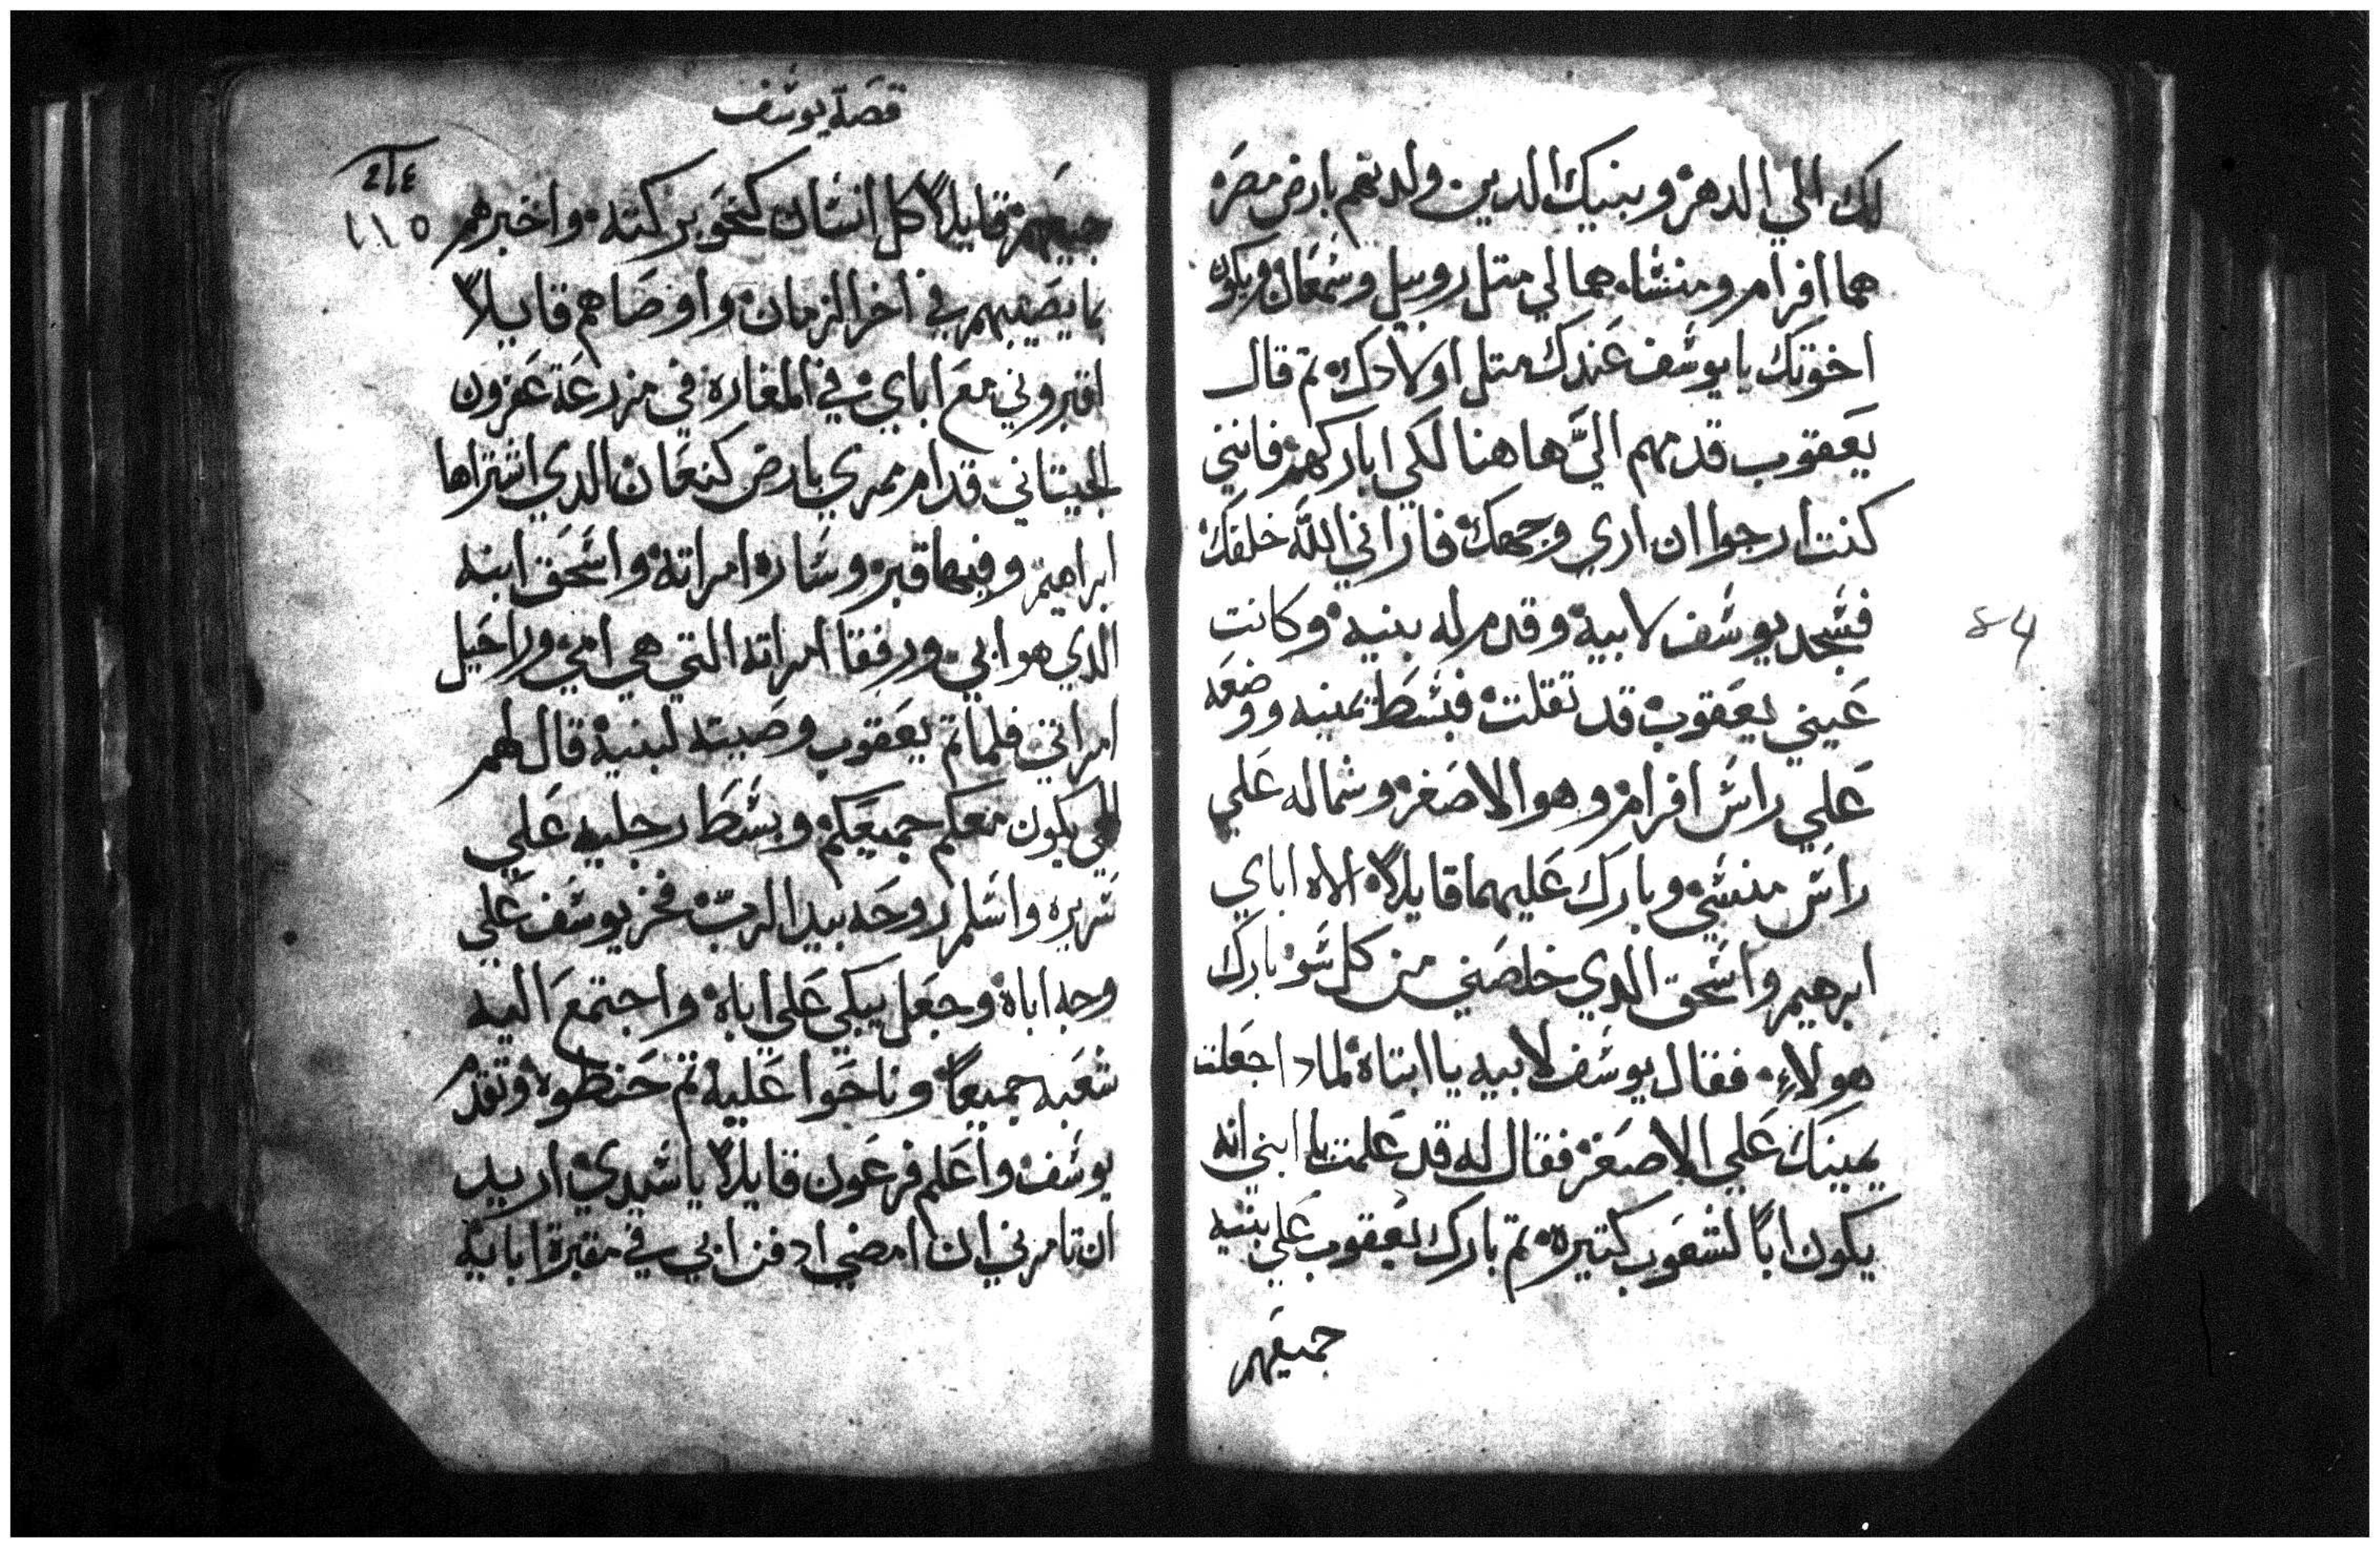 لك الي الدهر وبنيك الدين ولدتهم بارض مصر
هما افرام ومنشاه هما لي متل روبيل وشمعان ويكون
اخوتك يا يوسف عندك متل اولادك تم قال
يعقوب قدمهم اليَّ هاهنا لكي اباركهم فانني
كنت ارجوا ان اري وجهك فاراني الله خلفك
فسجد يوسف لابيه وقدم له بنيه وكانت
عيني يعقوب قد تقلت فبسط يمينه ووضعه
علي راس افرام وهو الاصغر وشماله علي
راس منشي وبارك عليهما قايلاً الاه اباي
ابرهيم واسحق الدي خلصني من كل سو بارك
هولاء فقال يوسف لابيه يا ابتاه لمادا جعلت
يمينك علي الاصغر فقال له قد علمت يا ابني انه
يكون اباً لشعوب كتيره تم بارك يعقوب علي بنيه
جميعهم
قصة يوسف
٢١٤
١١٥
جميعهم قايلاً كل انسان كنحو بركته واخبرهم
بما يصيبهم في اخر الزمان واوصاهم قايلاً
اقبروني مع اباي في المغاره في مزرعة عفرون
الحيتاني قدام ممري بارض كنعان الدي اشتراها
ابراهيم وفيها قبر وساره امراته واسحق ابنه
الدي هو ابي ورفقا امراته التي هي امي وراحيل
امراتي فلما تم يعقوب وصيته لبنيه قال لهم
الهي يكون معكم جميعكم وبسط رجليه علي
سريره واسلم روحه بيد الرب فخر يوسف علي
وجه اباه وجعل يبكي علي اباه واجتمع اليه
شعبه جميعاً وناحوا عليه تم حنطوه وتقدم
يوسف واعلم فرعون قايلاً يا سيدي اريد
ان تامرني ان امضي ادفن ابي في مقبرة ابايه